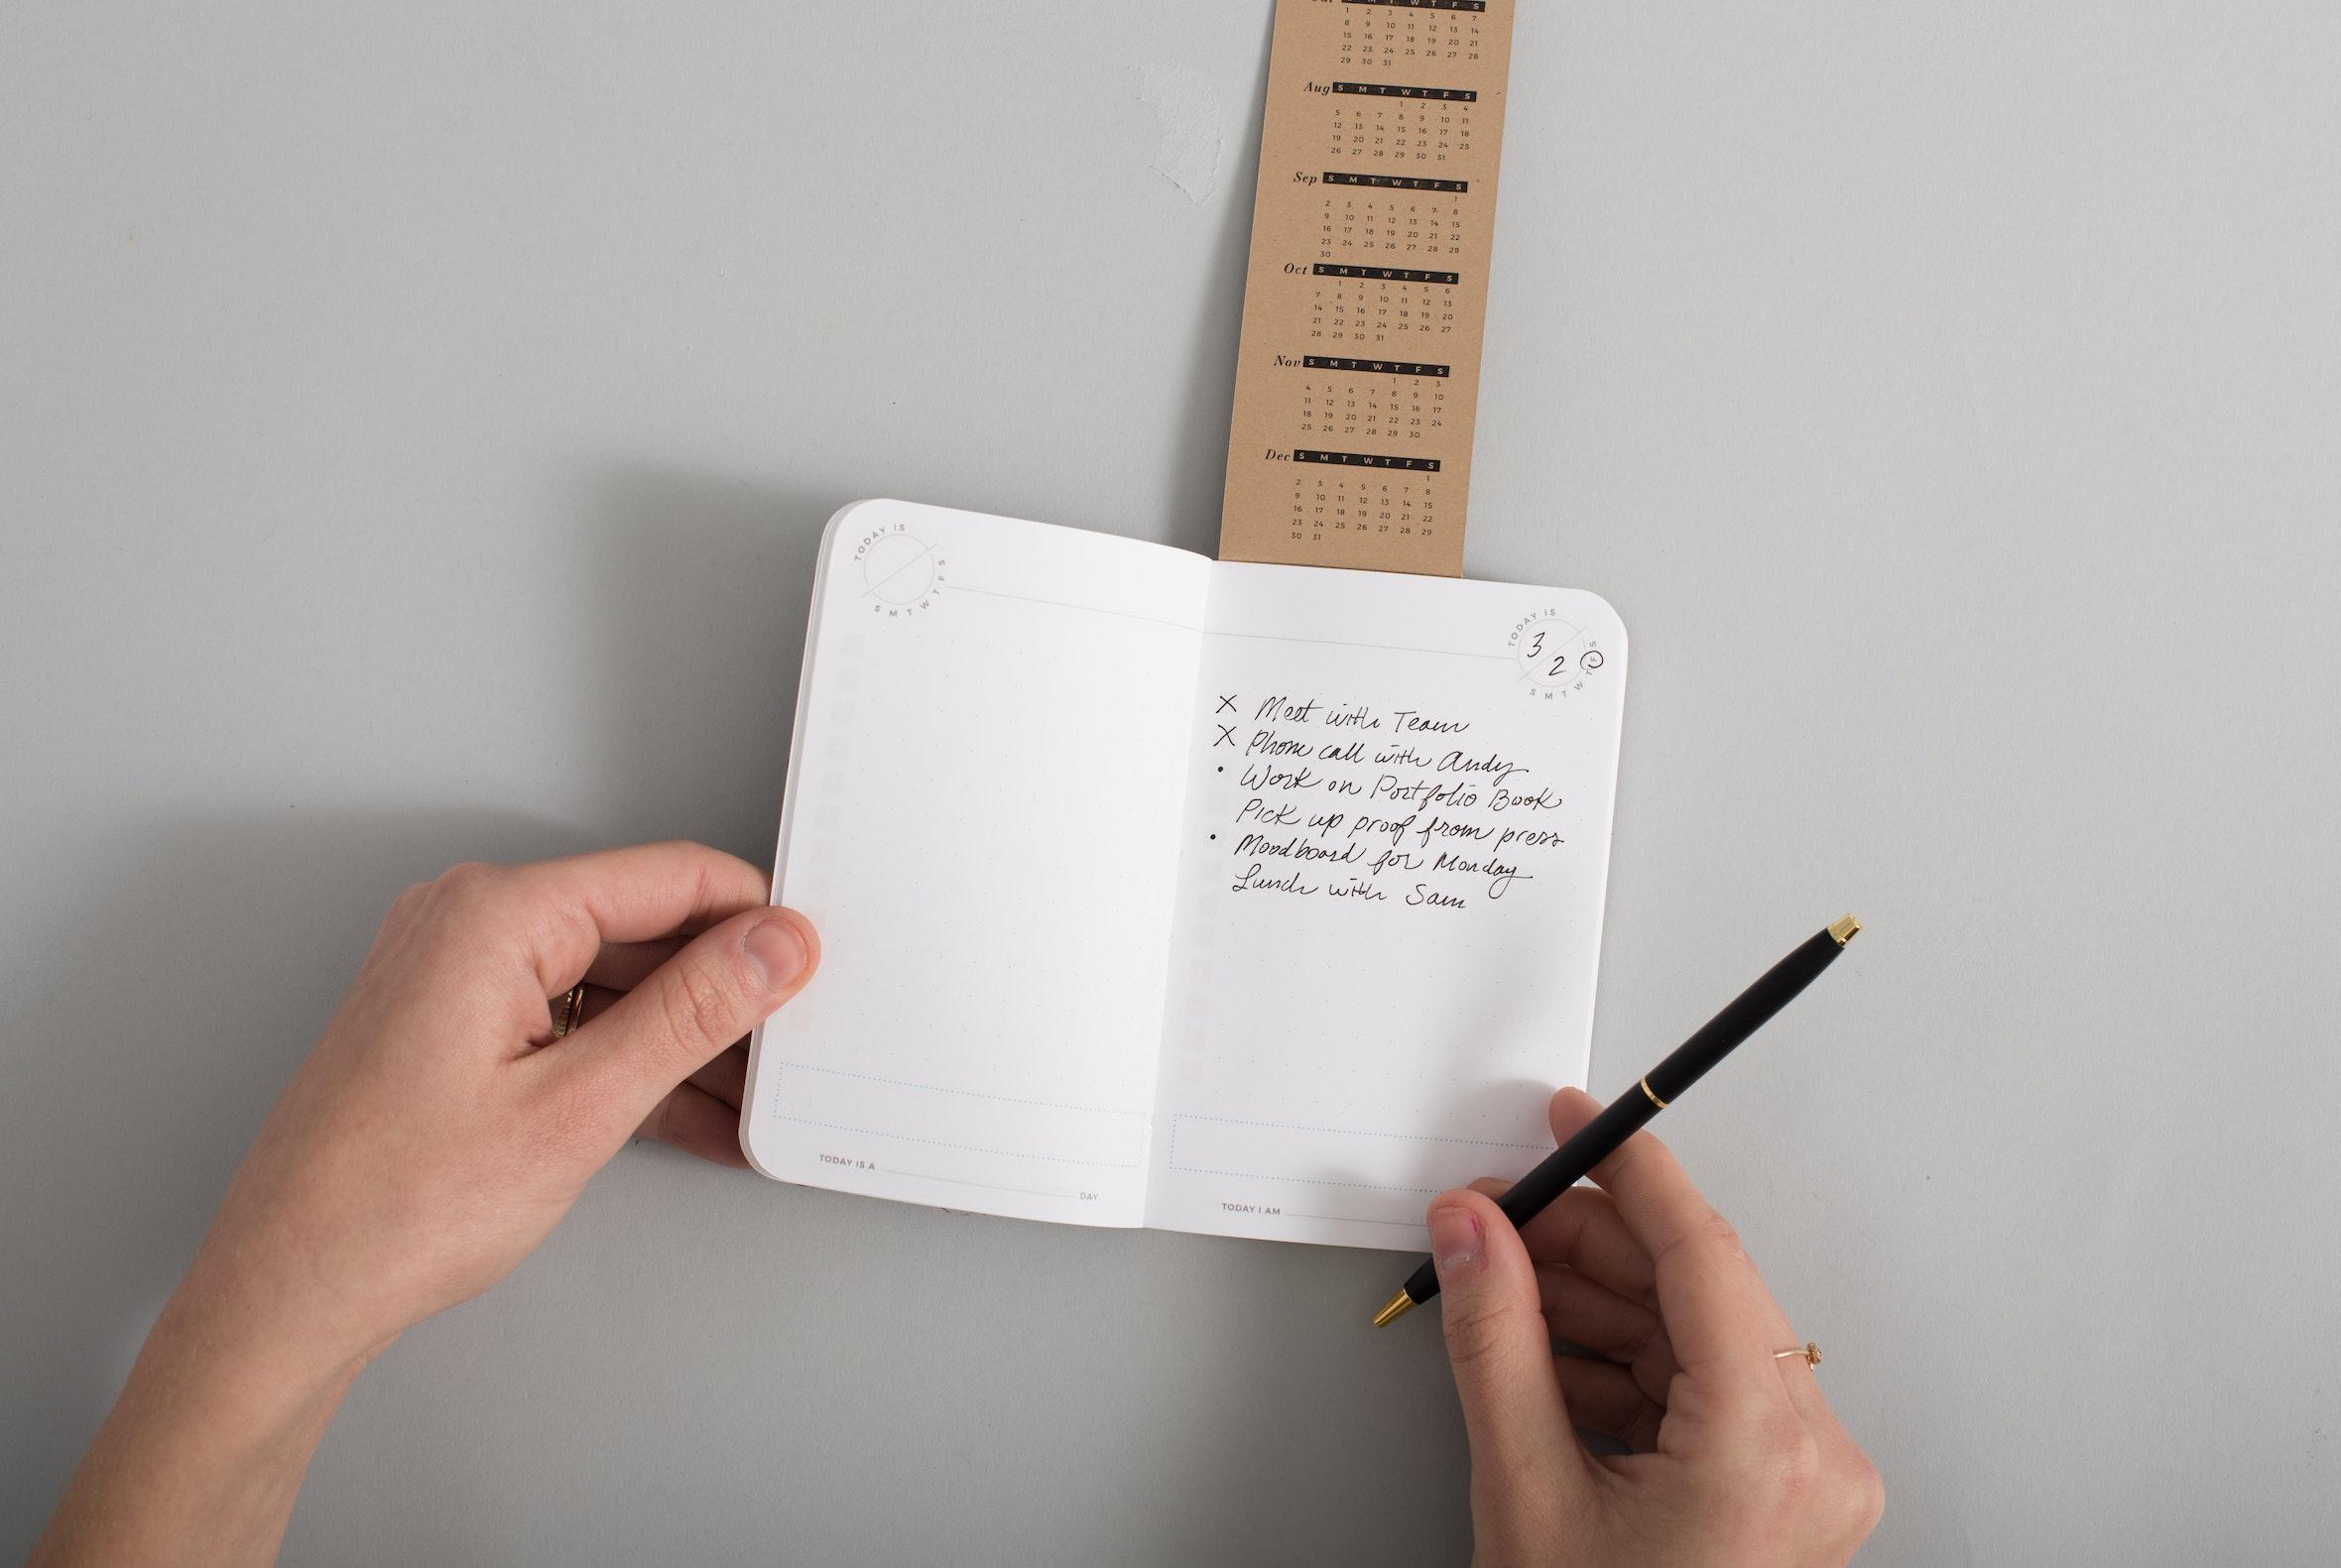 S M T W T F S
1 2 3 4 5 6 7
8 9 10 11 12 13 14
15 16 17 18 19 20 21
22 23 24 25 26 27 28
29 30 31
Aug S M T W T F S
1 2 3 4
5 6 7 8 9 10 11
12 13 14 15 16 17 18
19 20 21 22 23 24 25
26 27 28 29 30 31
Sep S M T W T F S
1
2 3 4 5 6 7 8
9 10 11 12 13 14 15
16 17 18 19 20 21 22
23 24 25 26 27 28 29
30
Oct S M T W T F S
1 2 3 4 5 6
7 8 9 10 11 12 13
14 15 16 17 18 19 20
21 22 23 24 25 26 27
28 29 30 31
Nov S M T W T F S
1 2 3
4 5 6 7 8 9 10
11 12 13 14 15 16 17
18 19 20 21 22 23 24
25 26 27 28 29 30
Dec S M T W T F S
1
2 3 4 5 6 7 8
9 10 11 12 13 14 15
16 17 18 19 20 21 22
23 24 25 26 27 28 29
30 31
TODAY IS
S M T W T F S
TODAY IS A DAY.
TODAY IS
3 2
S M T W T F S
X Meet with Team
X Phone call with Andy
• Work on Portfolio Book
Pick up proof from press
• Moodboard for Monday
Lunch with Sam
TODAY I AM